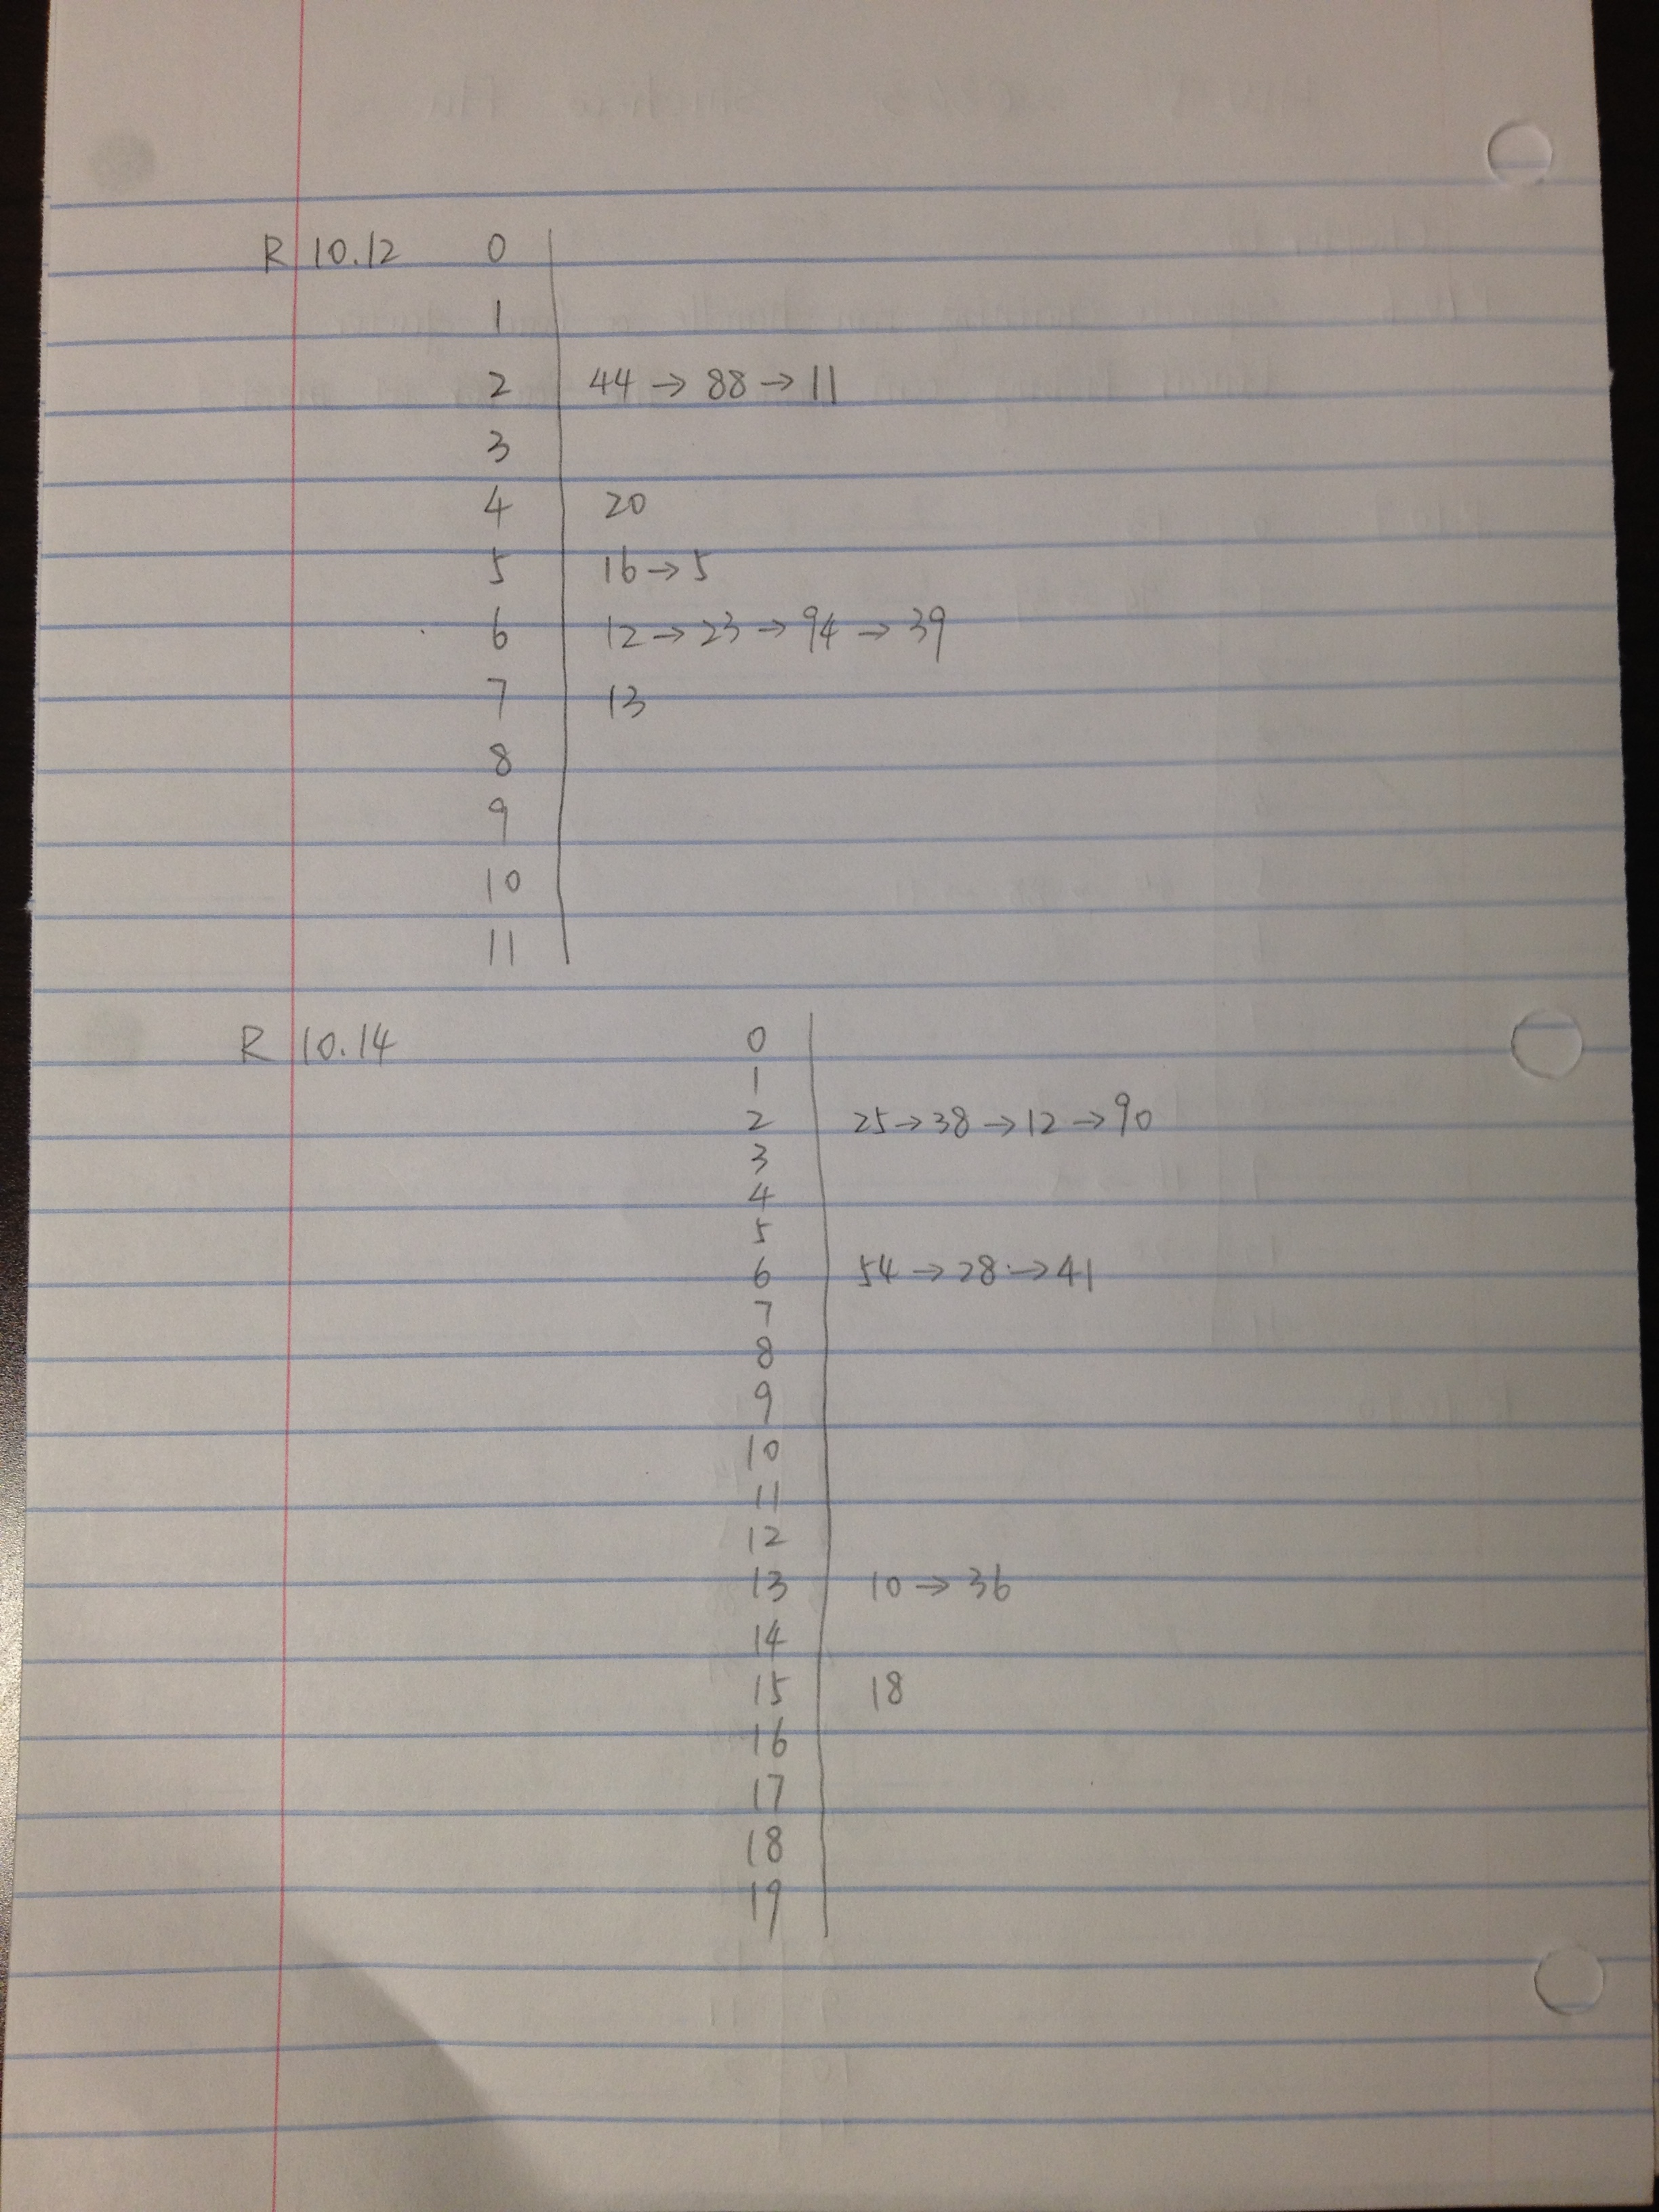 R 10.12 0
1
2 44 → 88 → 11
3
4 20
5 16 → 5
6 12 → 23 → 94 → 39
7 13
8
9
10
11
R 10.14 0
1
2 25 → 38 → 12 → 90
3
4
5
6 54 → 28 → 41
7
8
9
10
11
12
13 10 → 36
14
15 18
16
17
18
19